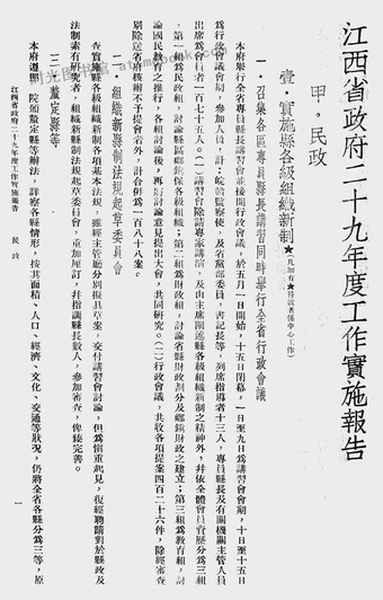 江西省政府二十九年度工作實施報告
甲·民政
壹·實施縣各級組織新制★(凡加有★符號者係中心工作)
一·召集各區專員縣長講習同時舉行全省行政會議
本府舉行全省專員縣長講習會並接開行政會議，於五月一日開始，十五日閉幕，一日至九日爲講習會會期，十日至十五日
爲行政會議會期，參加人員，計：皖贛監察使，及省黨部委員，書記長等，列席指導者十三人，專員縣長及有關機關主管人員
出席爲會員者一百七十五人。(一)講習會除請專家講演，及由主席闡述縣各級組織新制之精神外，幷依全體會員資歷分爲三組
，第一組爲民政組，討論縣區鄉鎮保各級組織；第二組爲財政組，討論省縣財政劃分及鄉鎮財政之建立；第三組爲教育組，討
論國民教育之推行，各組討論後，再將討論意見提出大會，共同研究。(二)行政會議，共收各項提案四百二十六件，除經審查
剔除送省府核辦不予提會者外，計合併爲一百八十八案。
二·組織新縣制法規起草委員會
查實施縣各級組織新制各項基本法規，雖經主管廳分別擬具草案，交付講習會討論，但爲愼重起見，復經聘請對於縣政及
法制素有研究者，組織新縣制法規起草委員會，重加釐訂，幷指調縣長數人，參加審查，俾臻完善。
三·釐定縣等
本府遵照 院頒釐定縣等辦法，詳察各縣情形，按其面積、人口、經濟、文化、交通等狀況，仍將全省各縣分爲三等，原
江西省政府二十九年度工作實施報告 民政
一